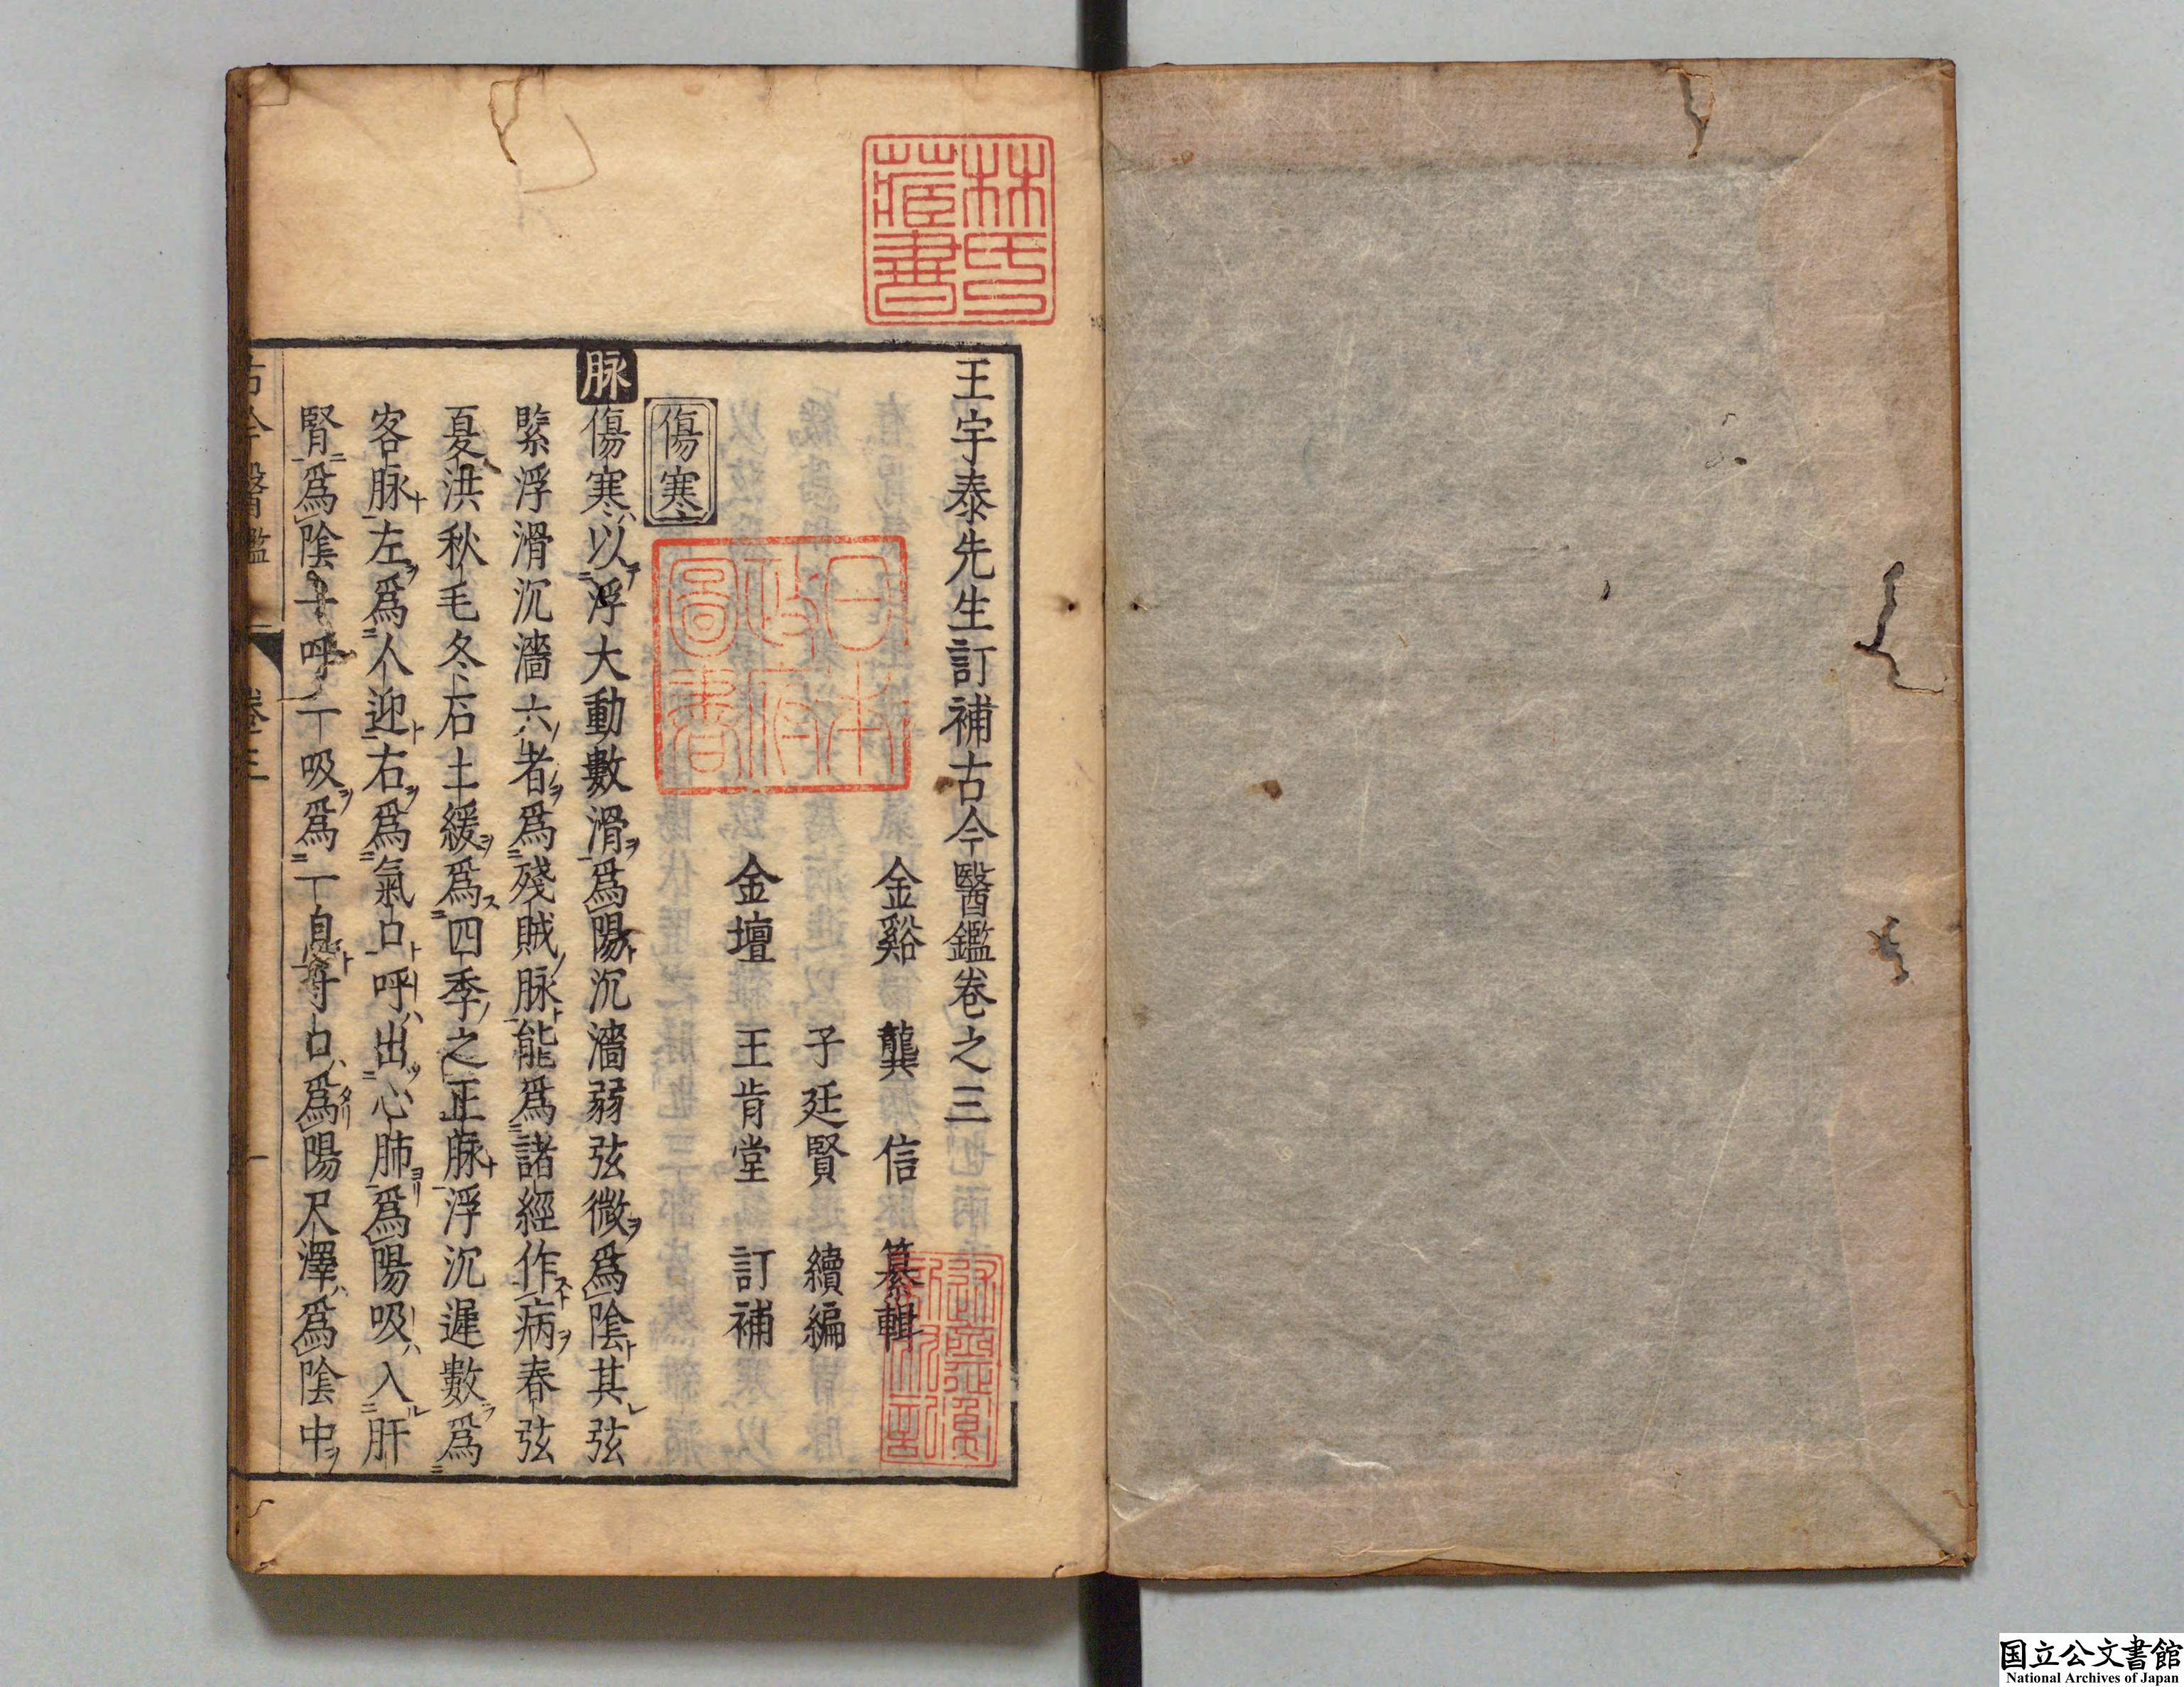 王宇泰先生訂補古今醫鑑卷之三
金谿 龔 信 纂輯
子廷賢 續編
金壇 王肯堂 訂補
傷寒
脉 傷寒以浮大動數滑爲陽沉濇弱弦微爲陰其弦
緊浮滑沉濇六者爲殘賊脉能爲諸經作病春弦
夏洪秋毛冬石土緩爲四季之正脉浮沉遲數爲
客脉左爲人迎右爲氣口呼出心肺爲陽吸入肝
腎爲陰一呼一吸爲一息寸口爲陽尺澤爲陰中
古今醫鑑 卷三 一
林氏藏書
日本政府圖書
国立公文書館
National Archives of Japan